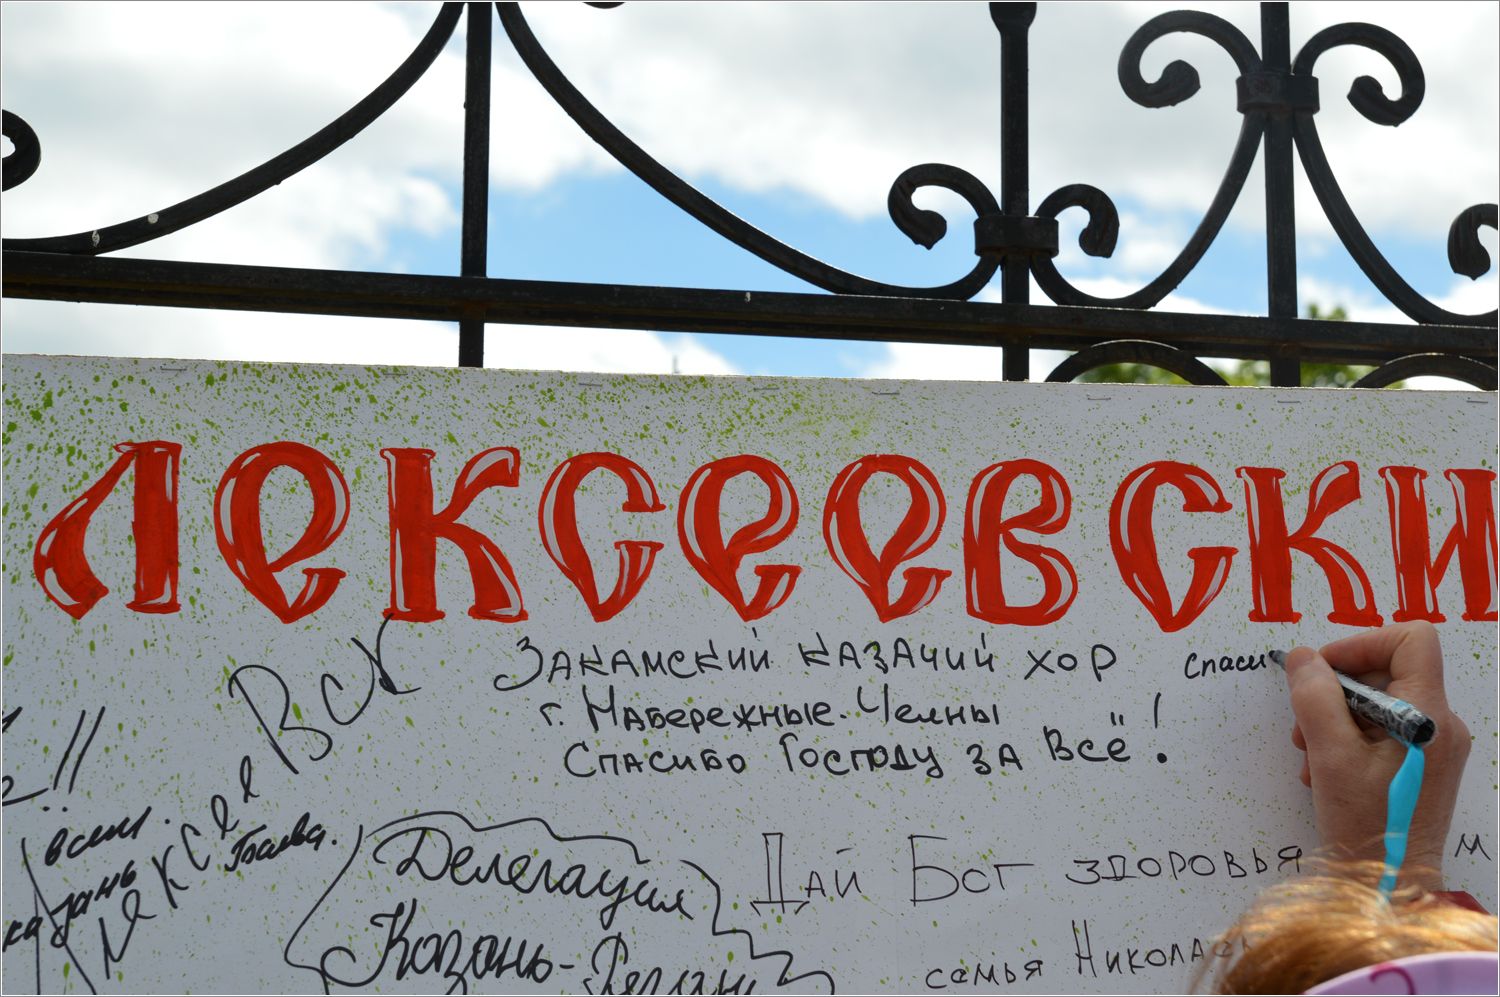 ЛЕКСЕЕВСКИ
ЗАКАМСКИЙ КАЗАЧИЙ ХОР
г. НАБЕРЕЖНЫЕ-ЧЕЛНЫ
СПАСИБО ГОСПОДУ ЗА ВСЁ!
Спаси
!!
всем.
казань
лексеевск
Делегация
Казань-
ДАЙ БОГ ЗДОРОВЬЯ
М
семья Николае